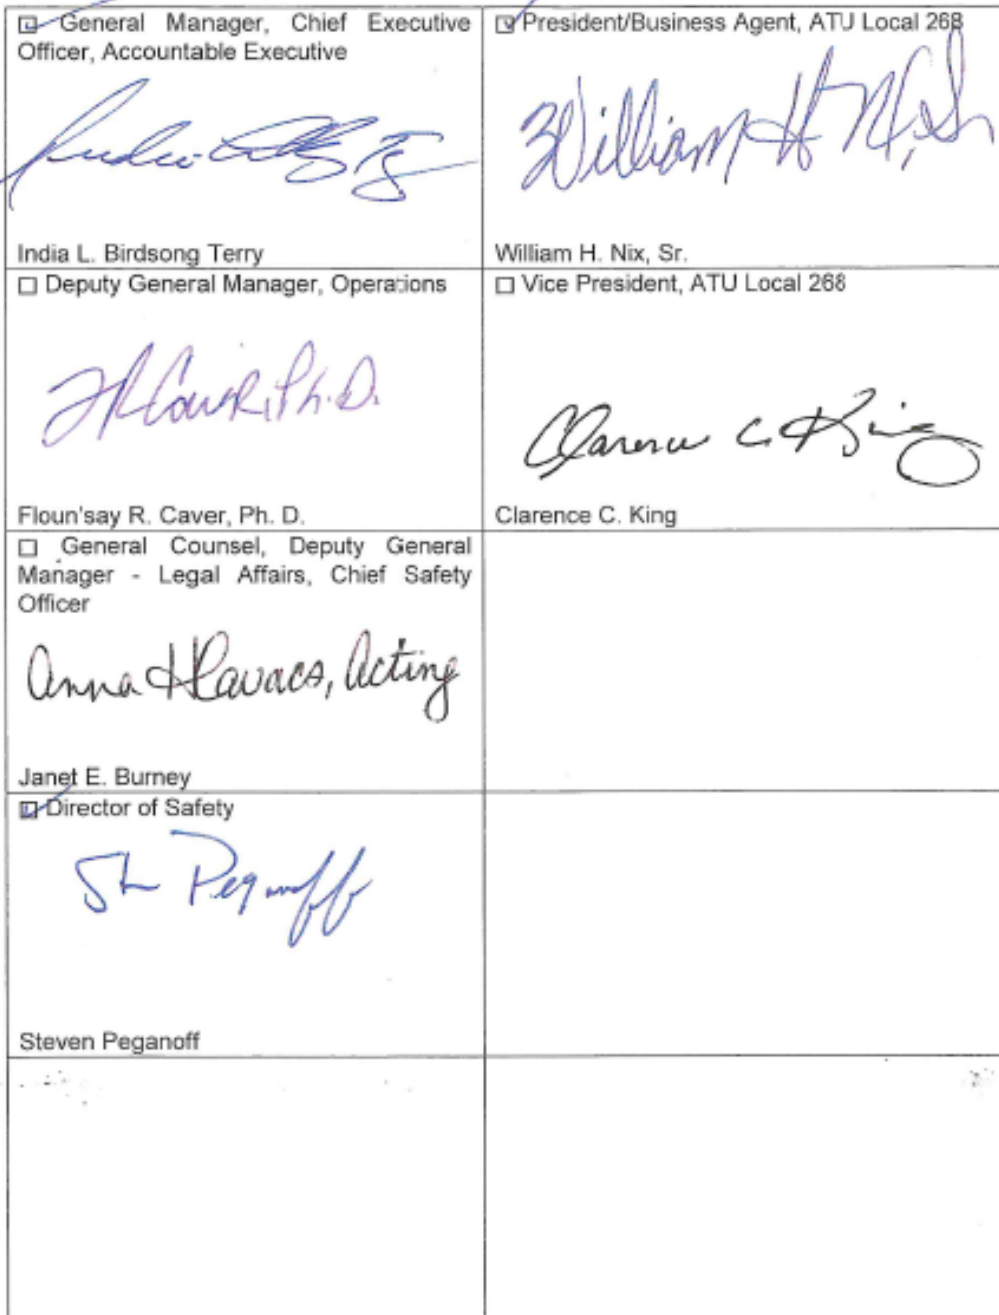 General Manager, Chief Executive
Officer, Accountable Executive
India L. Birdsong Terry
President/Business Agent, ATU Local 268
William H N, Sr
William H. Nix, Sr.
Deputy General Manager, Operations
FRCaver, Ph.D.
Floun'say R. Caver, Ph. D.
Vice President, ATU Local 268
Clarence C. King
Clarence C. King
General Counsel, Deputy General
Manager - Legal Affairs, Chief Safety
Officer
Anna Hlavacs, Acting
Janet E. Burney
Director of Safety
Peganoff
Steven Peganoff